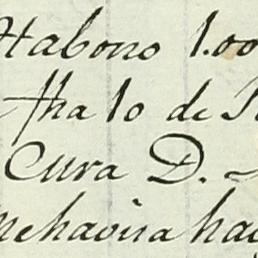 Habono 1.00
fha 10 de
Cura D.
me havisa hay